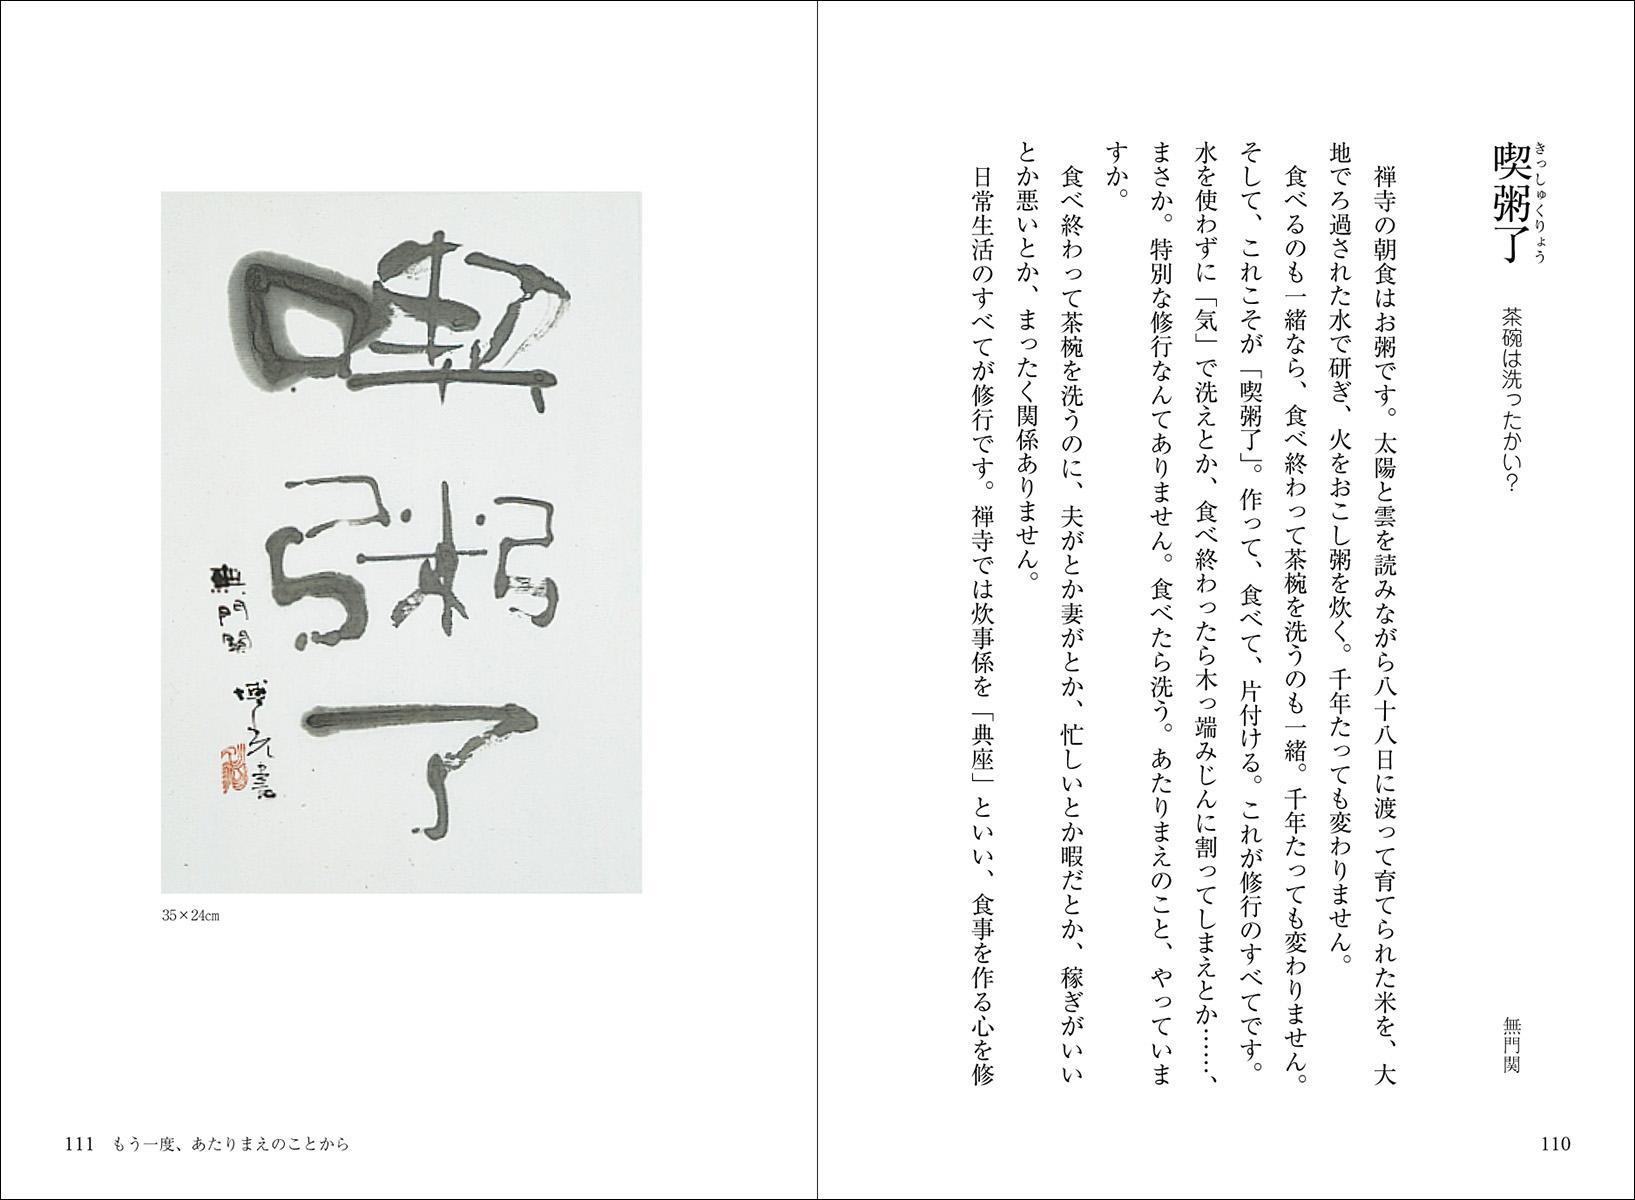 喫粥了
きっしゅくりょう
茶碗は洗ったかい?
無門関
禅寺の朝食はお粥です。太陽と雲を読みながら八十八日に渡って育てられた米を、大
地でろ過された水で研ぎ、火をおこし粥を炊く。千年たっても変わりません。
食べるのも一緒なら、食べ終わって茶椀を洗うのも一緒。千年たっても変わりません。
そして、これこそが「喫粥了」。作って、食べて、片付ける。これが修行のすべてです。
水を使わずに「気」で洗えとか、食べ終わったら木っ端みじんに割ってしまえとか……、
まさか。特別な修行なんてありません。食べたら洗う。あたりまえのこと、やっていま
すか。
食べ終わって茶椀を洗うのに、夫がとか妻がとか、忙しいとか暇だとか、稼ぎがいい
とか悪いとか、まったく関係ありません。
日常生活のすべてが修行です。禅寺では炊事係を「典座」といい、食事を作る心を修
110
喫粥了
無門関
博元書
35×24cm
111 もう一度、あたりまえのことから